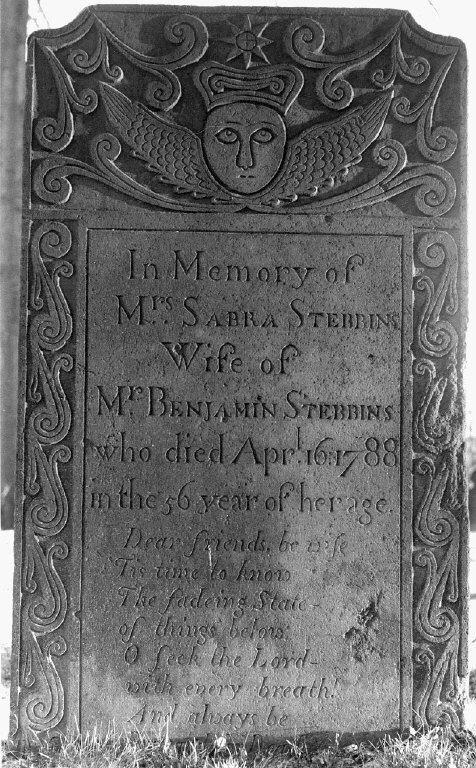 In Memory of
Mrs. SABRA STEBBINS
Wife of
Mr. BENJAMIN STEBBINS
who died Aprl. 16: 1788
in the 56 year of her age.
Dear friends, be wife
Tis time to know
The fadeing State
of things below;
O ſeek the Lord
with every breath!
And always be